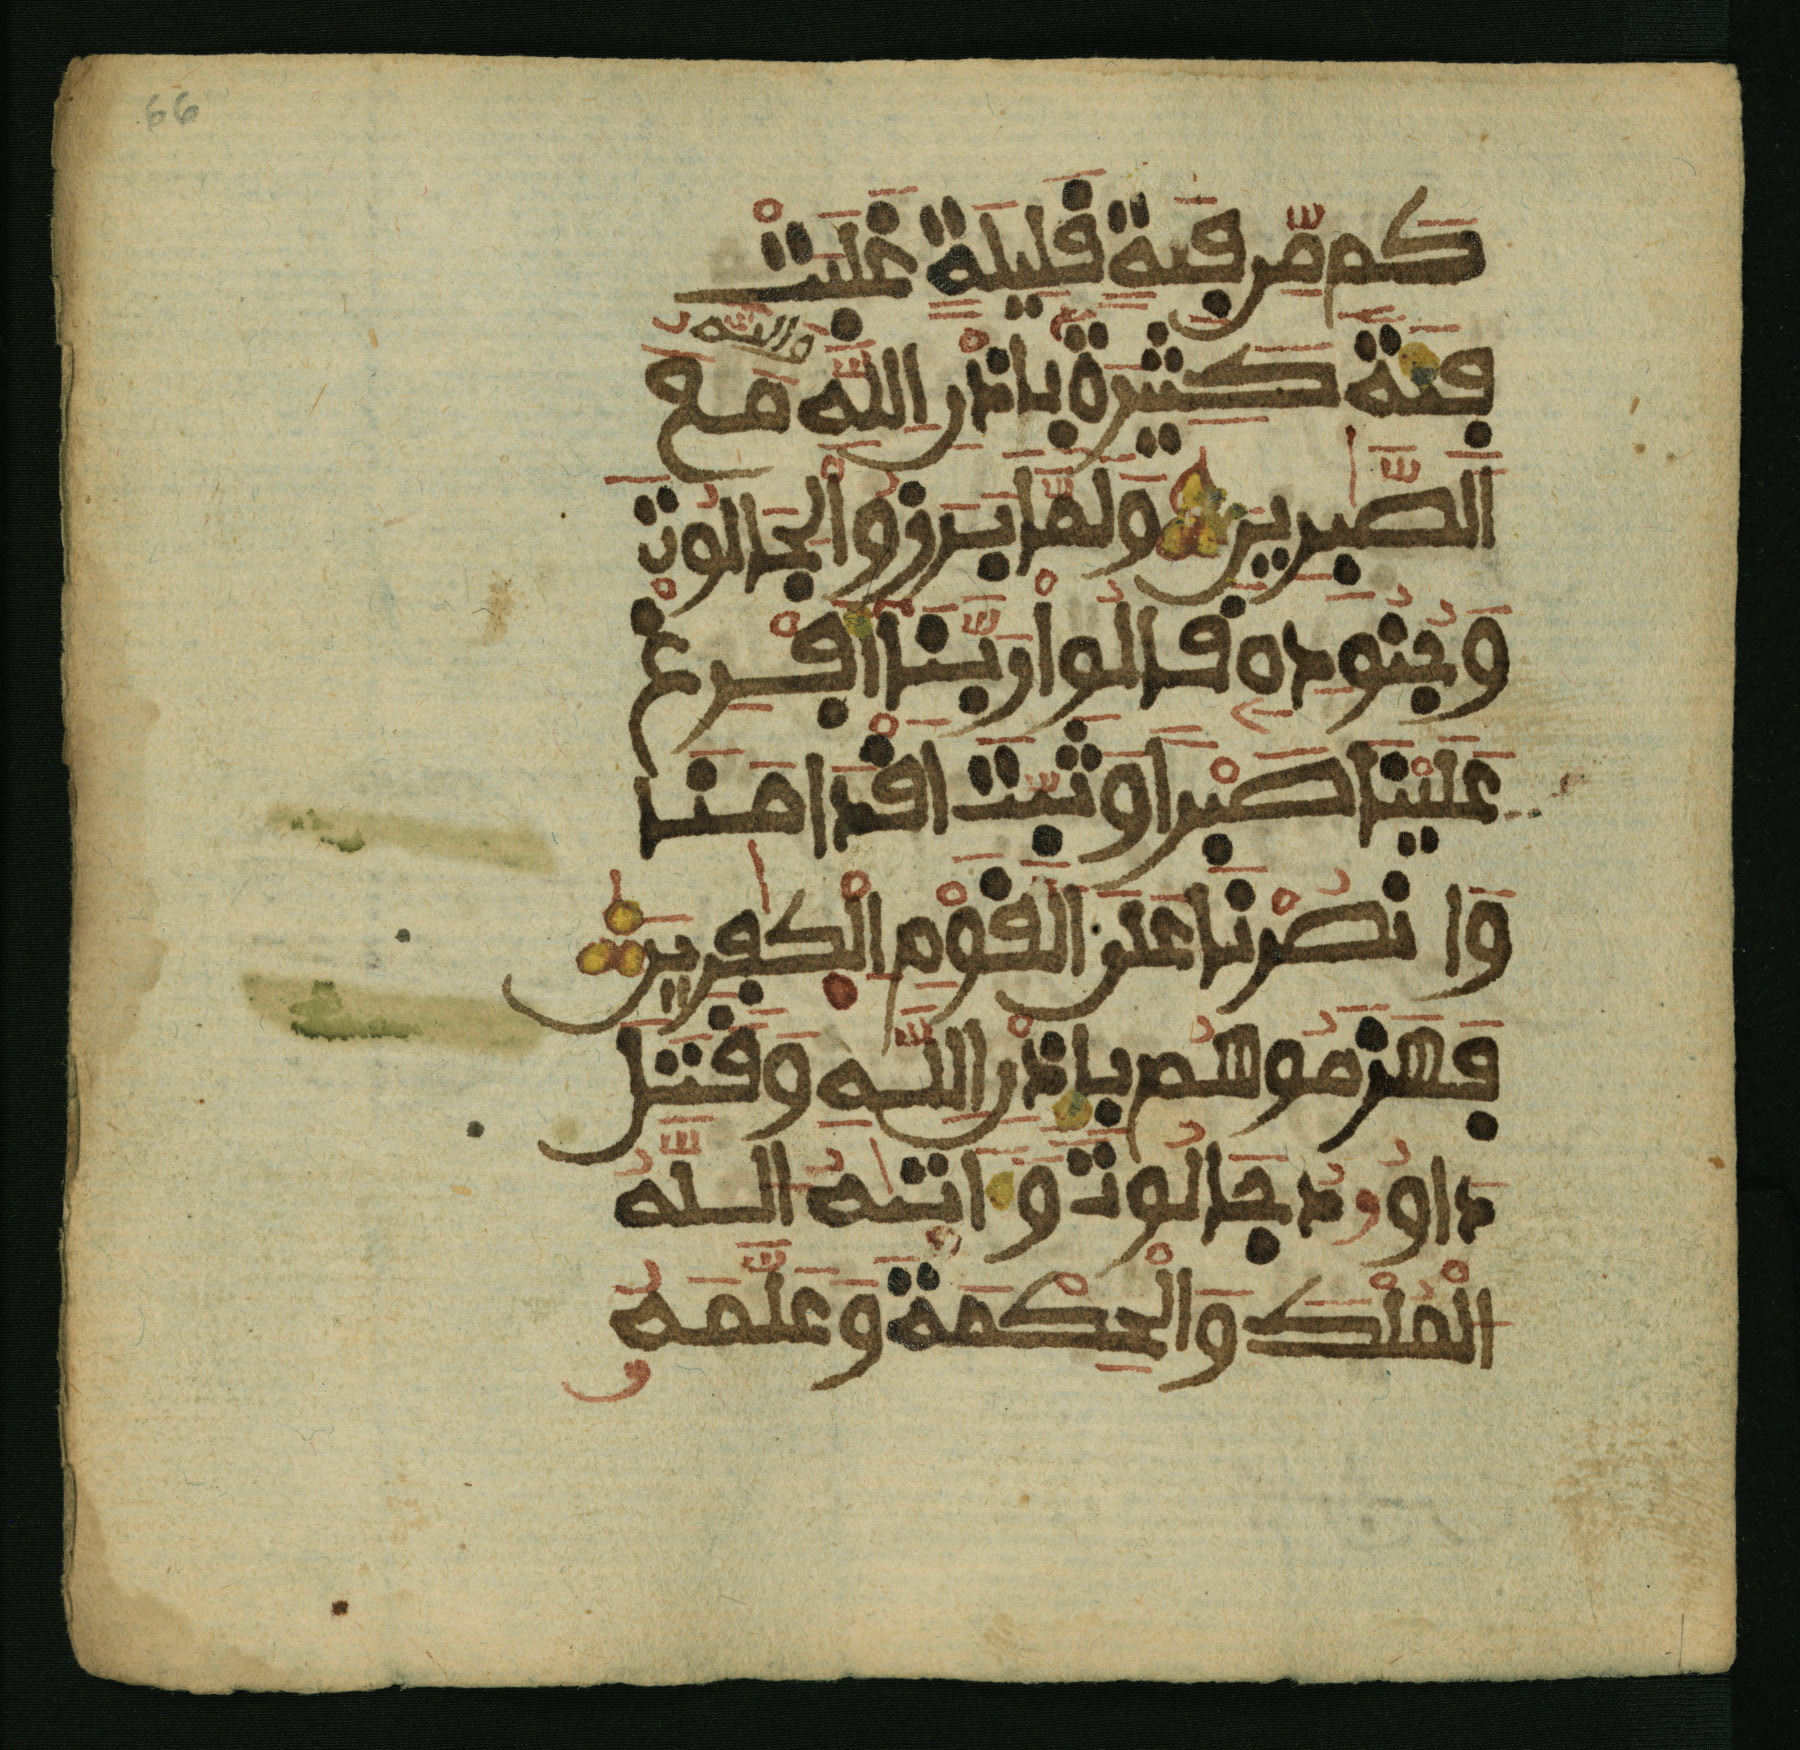 66
كَم مِّن فِئَةٍ قَلِيلَةٍ غَلَبَتْ
والله
فِئَةً كَثِيرَةً بِإِذْنِ اللَّهِ مَعَ
الصَّبِرِينَ وَلَمَّا بَرَزُوا لِجَالُوتَ
وَجُنُودِهِ قَالُوا رَبَّنَا أَفْرِغْ
عَلَيْنَا صَبْرًا وَثَبِّتْ أَقْدَامَنَا
وَانصُرْنَا عَلَى الْقَوْمِ الْكَفِرِينَ
فَهَزَمُوهُم بِإِذْنِ اللَّهِ وَقَتَلَ
دَاوُودُ جَالُوتَ وَاتَىهُ اللَّهُ
الْمُلْكَ وَالْحِكْمَةَ وَعَلَّمَهُ